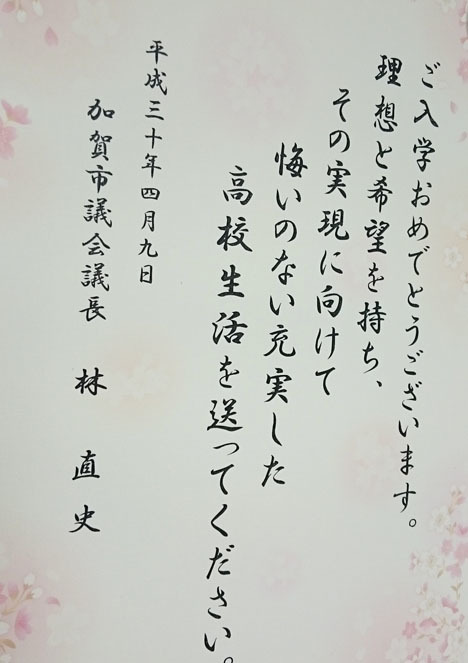 ご入学おめでとうございます。
理想と希望を持ち、
その実現に向けて
悔いのない充実した
高校生活を送ってください。
平成三十年四月九日
加賀市議会議長　林　直史